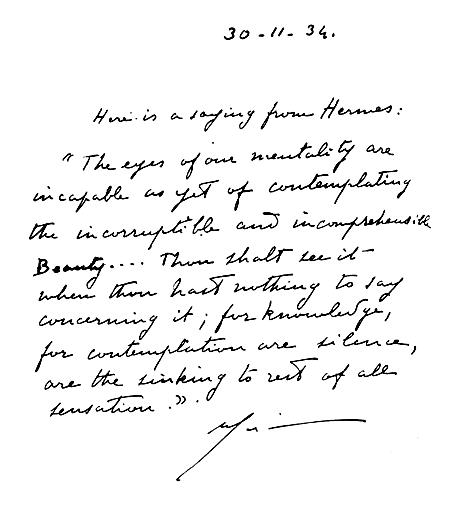 30-11-34.
Here is a saying from Hermes:
"The eyes of our mentality are
incapable as yet of contemplating
the incorruptible and incomprehensible
Beauty.... Thou shalt see it
when thou hast nothing to say
concerning it; for knowledge,
for contemplation are silence,
are the sinking to rest of all
sensation."